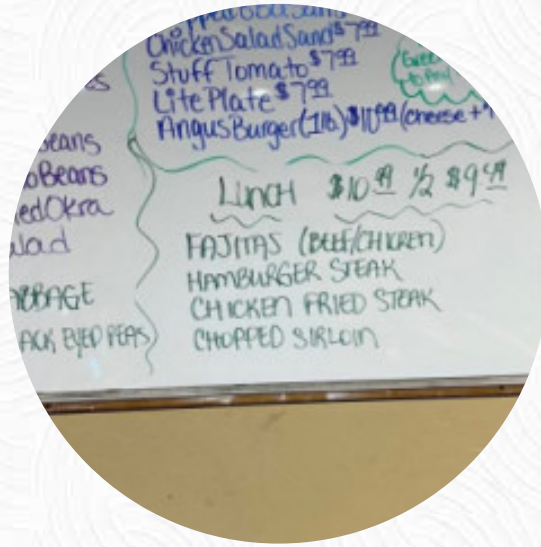 Chicken Salad Sand $7.99
Stuff Tomato $7.99
Lite Plate $7.99
Angus Burger (1lb) $10.99 (cheese +
Beans
Beans
Okra
LUNCH $10.99 1/2 $9.49
FAJITAS (BEEF/CHICKEN)
HAMBURGER STEAK
CHICKEN FRIED STEAK
CHOPPED SIRLOIN
EYED PEAS